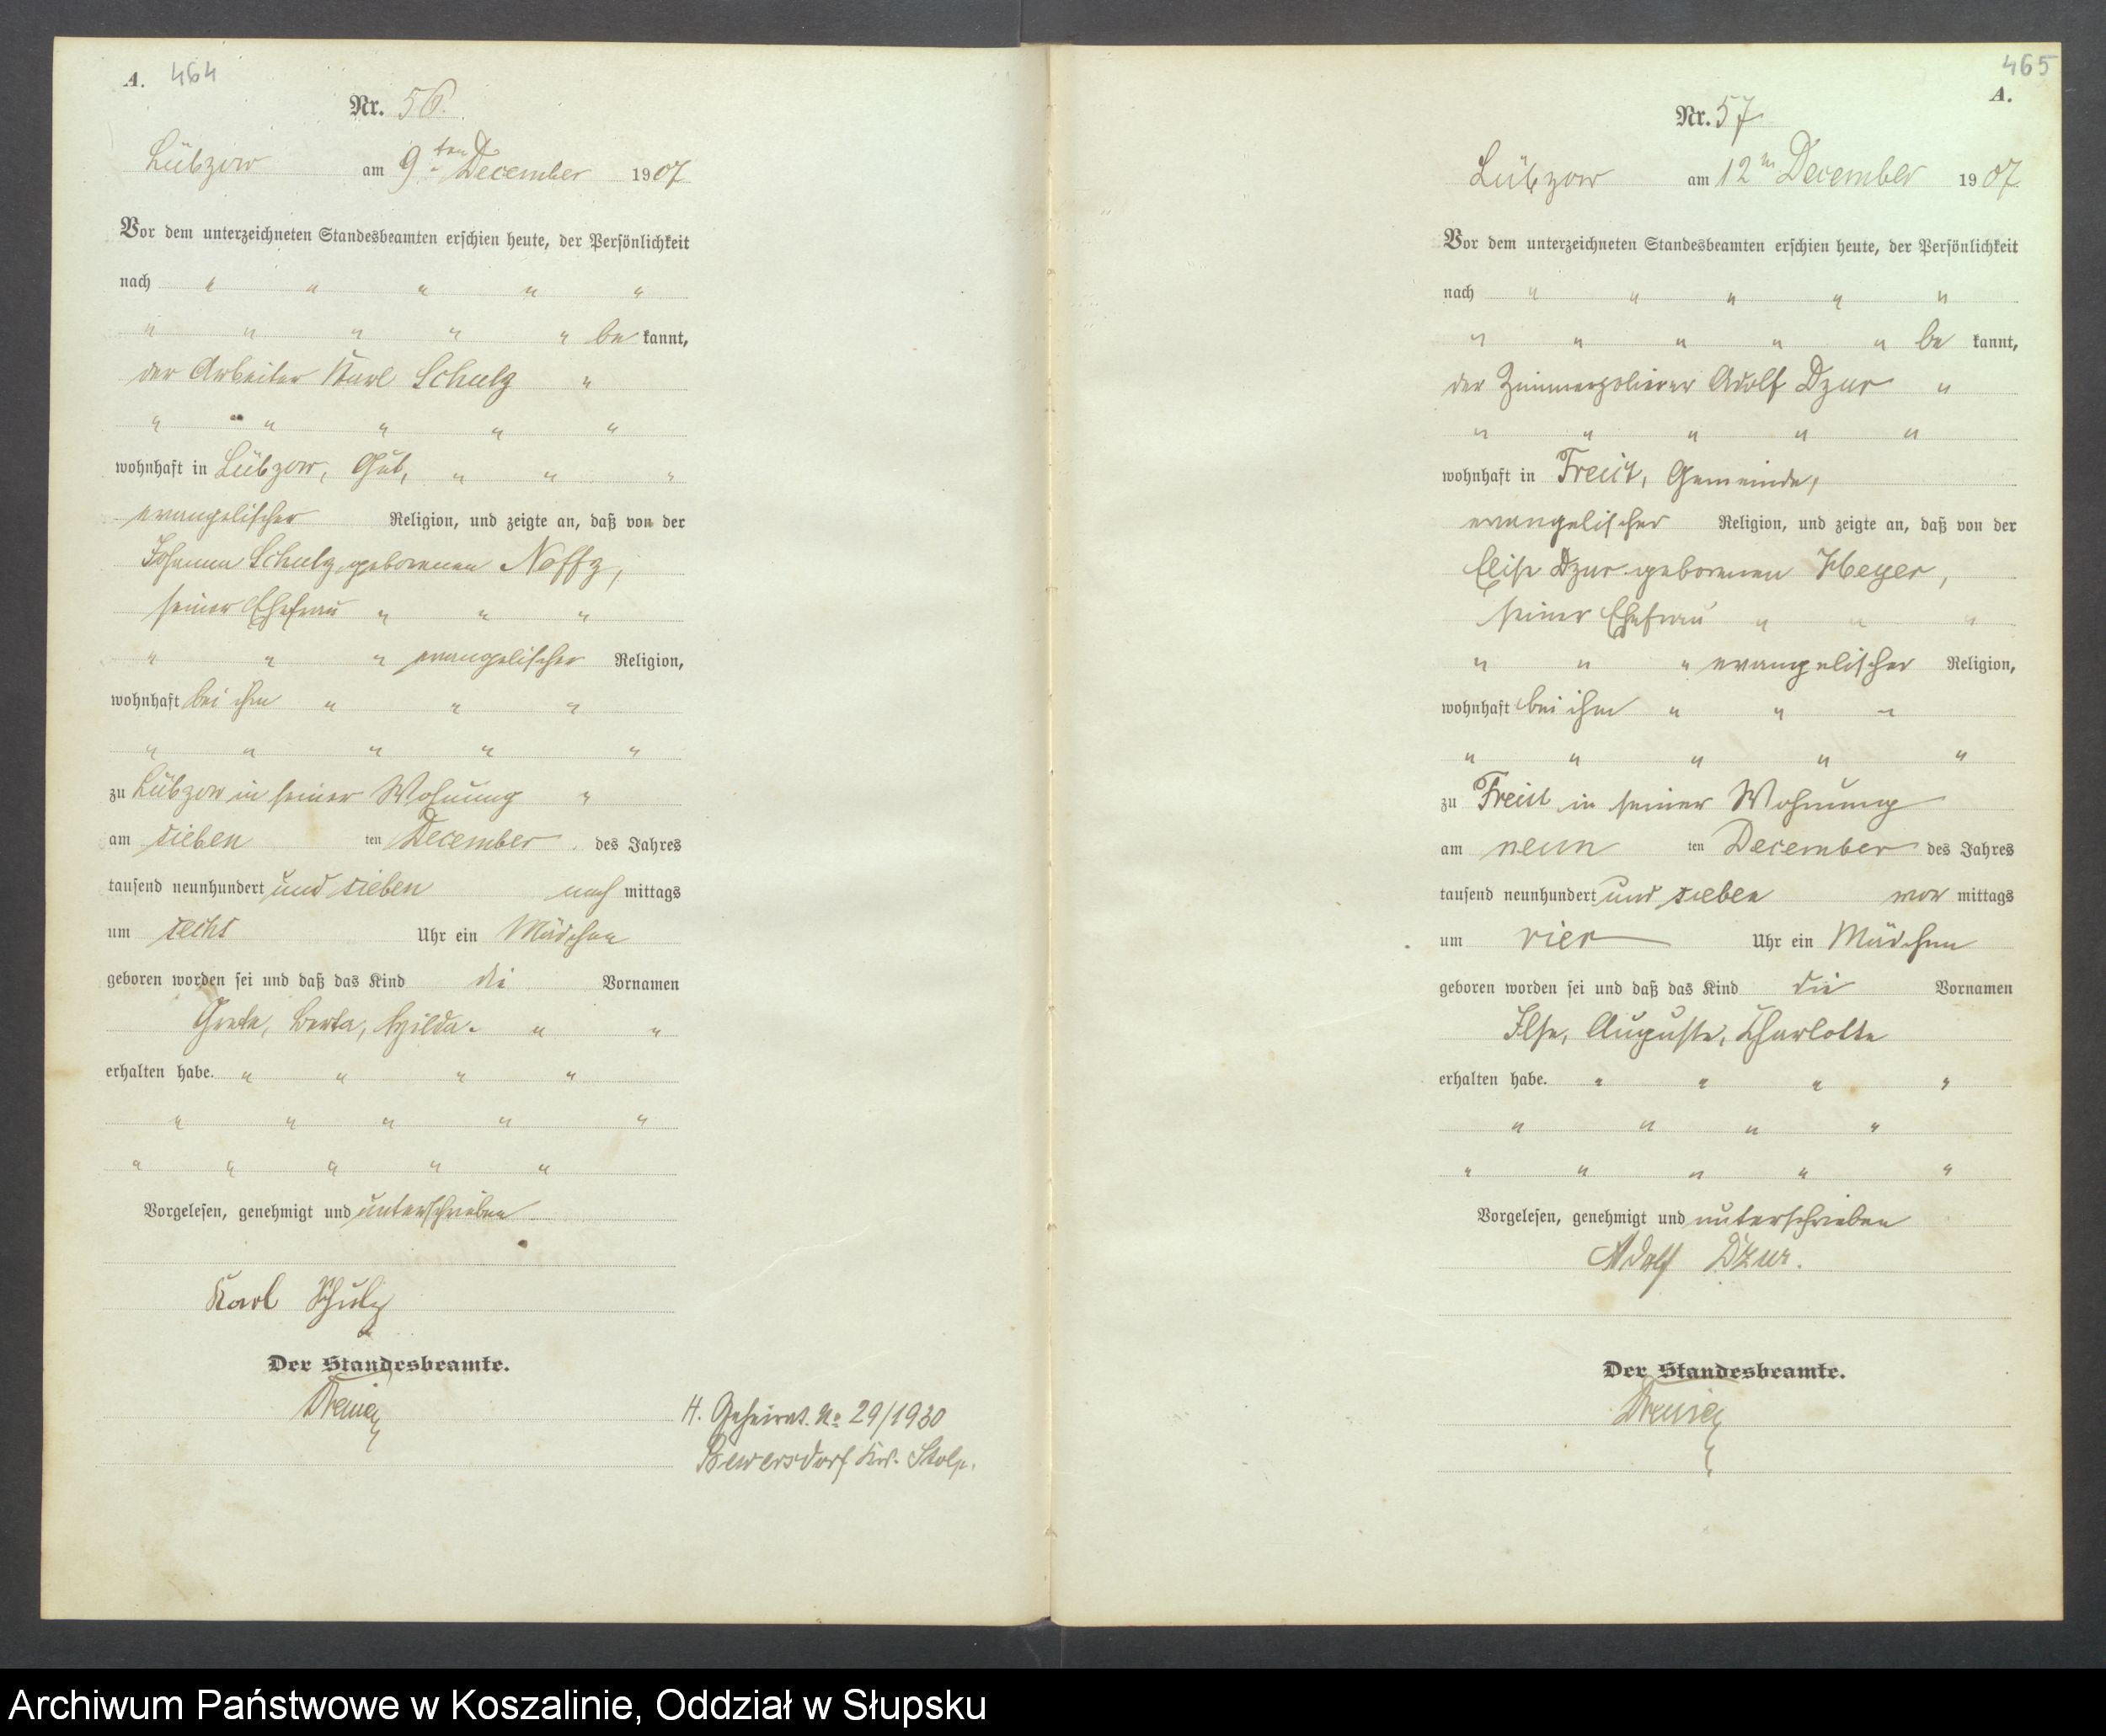 A. 464
Nr. 56.
Lübzow am 9ten December 1907
Vor dem unterzeichneten Standesbeamten erschien heute, der Persönlichkeit
nach " " " " "
" " " " " be kannt,
der Arbeiter Karl Schulz "
" " " " "
wohnhaft in Lübzow, Gut, " " "
evangelischer Religion, und zeigte an, daß von der
Johanna Schulz geborenen Noffz,
seiner Ehefrau " " "
" " " evangelischer Religion,
wohnhaft bei ihm " " "
" " " " "
zu Lübzow in seiner Wohnung "
am sieben ten December des Jahres
tausend neunhundert und sieben nach mittags
um sechs Uhr ein Mädchen
geboren worden sei und daß das Kind die Vornamen
Grete, Berta, Hilda. " "
erhalten habe. " " " "
" " " " "
" " " " "
Vorgelesen, genehmigt und unterschrieben
Karl Schulz
Der Standesbeamte.
H. Geheirat. No 29/1930
Bewersdorf Krs. Stolp.
465
A.
Nr. 57
Lübzow am 12ten December 1907
Vor dem unterzeichneten Standesbeamten erschien heute, der Persönlichkeit
nach " " " " "
" " " " " be kannt,
der Zimmerpolierer Adolf Dzur "
" " " " "
wohnhaft in Freist, Gemeinde,
evangelischer Religion, und zeigte an, daß von der
Elise Dzur geborenen Heyer,
seiner Ehefrau " " "
" " " evangelischer Religion,
wohnhaft bei ihm " " "
" " " " "
zu Freist in seiner Wohnung
am neun ten December des Jahres
tausend neunhundert und sieben vor mittags
um vier Uhr ein Mädchen
geboren worden sei und daß das Kind die Vornamen
Ilse, Auguste, Charlotte
erhalten habe. " " " "
" " " "
" " " " "
Vorgelesen, genehmigt und unterschrieben
Adolf Dzur.
Der Standesbeamte.
Archiwum Państwowe w Koszalinie, Oddział w Słupsku